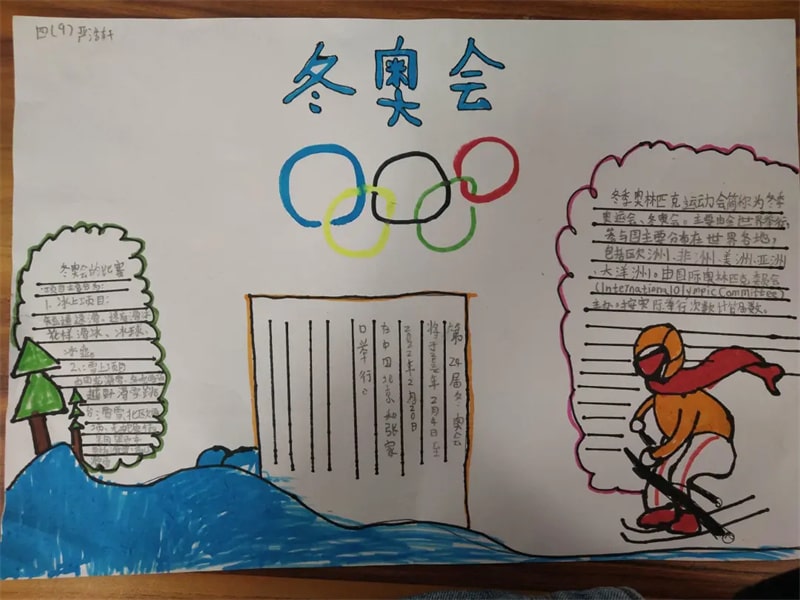 四(9)严
冬奥会
冬奥会的比赛
项目主要为:
1.冰上项目:
短道速滑、速度滑冰
花样滑冰、冰球、
冰壶。
2.雪上项目
越野滑雪
第24届冬奥会
将于年2月4日至
2022年2月20日
在中国北京和张家
口举行。
冬季奥林匹克运动会简称为冬季
奥运会、冬奥会。主要由全世界举行,
参与国主要分布在世界各地,
包括欧洲、非洲、美洲、亚洲
大洋洲。由国际奥林匹克委员会
(InternationalOlympicCommittee)
主办,按实际举行次数计算届数。